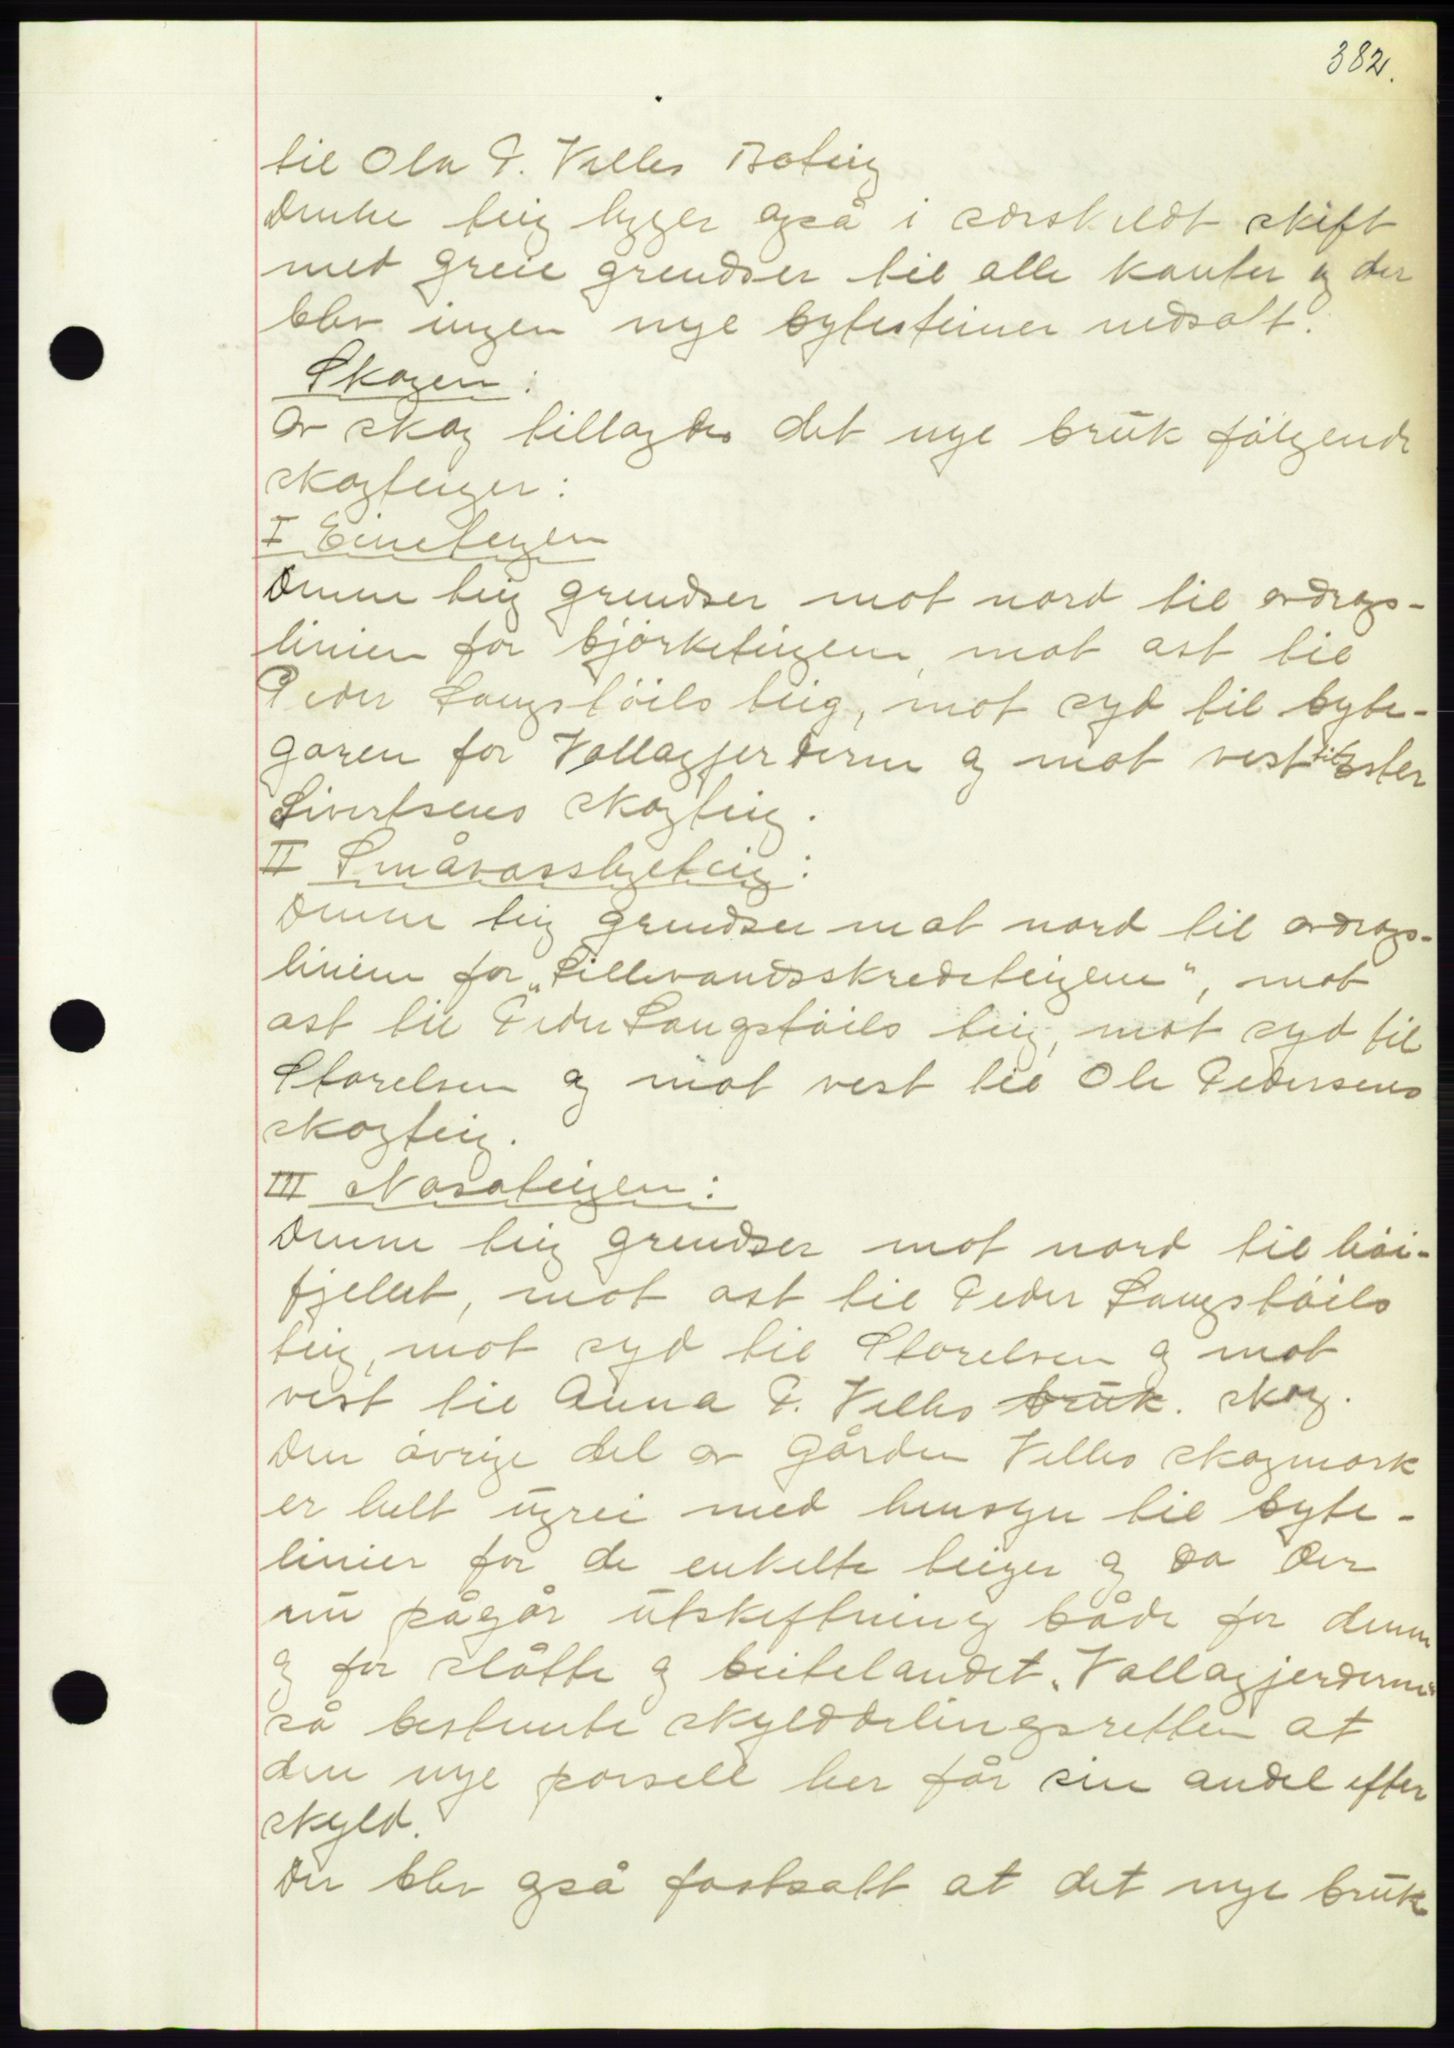 382.
til Ola P. Velles Boteig
Denne teig ligger også i særskildt skift
med greie grendser til alle kanter og der
blev ingen nye bytesteiner nedsatt.
Skogen:
Av skog tillagdes det nye bruk følgende
skogteiger:
I Eineteigen
Denne teig grendser mot nord til avdrags-
linien for bjørketeigene, mot øst til
Peder Langstöils teig, mot syd til byte-
garen for Vollagjerderne og mot vest til Ester
Sivertsens skogteig.
II Småvasslyeteig:
Denne teig grendser mot nord til avdrags-
linien for „Lillevandsskredeteigene", mot
øst til Peder Langstöils teig, mot syd til
Storelven og mot vest til Ole Pedersens
skogteig.
III Nasateigen:
Denne teig grendser mot nord til høi-
fjellet, mot øst til Peder Langstöils
teig, mot syd til Storelven og mot
vest til Anna P. Velles bruk. skog.
Den övrige del av gården Velles skogmark
er helt ugrei med hensyn til byte-
linier for de enkelte teiger og da der
nu pågår utskiftning både for denne
og for slåtte og beitelandet „Vollagjerderne"
så bestemte skylddelingsretten at
den nye parsell her får sin andel efter
skyld.
Der blev også fastsatt at det nye bruk